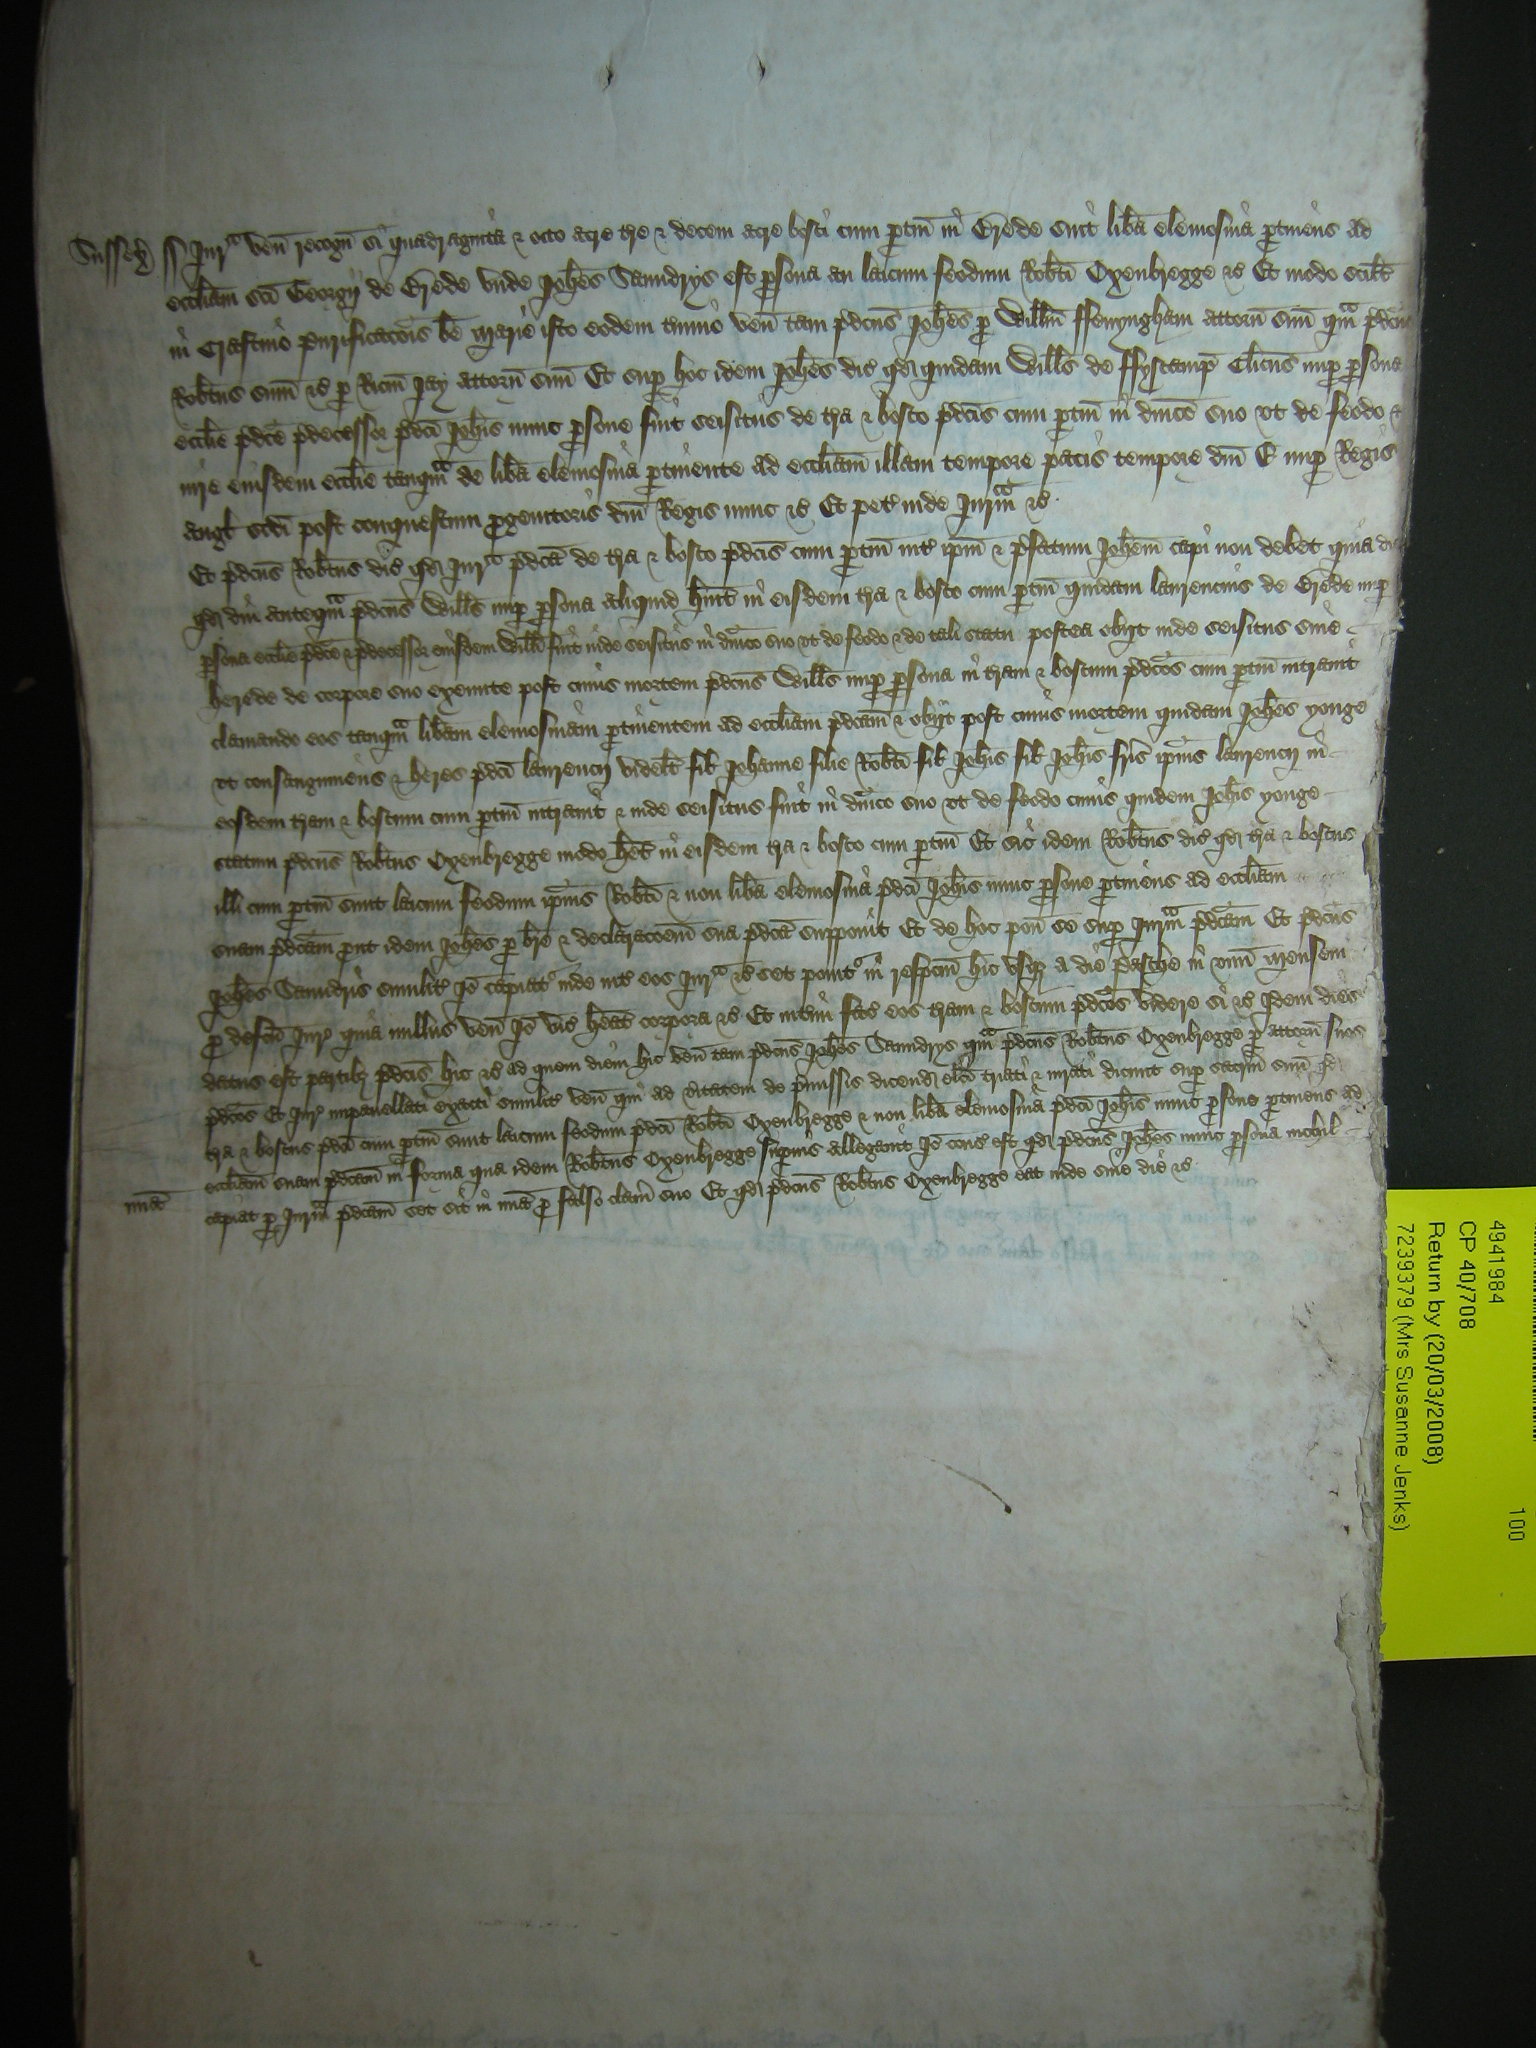 Sussex ss Jur̃ ven̄ recogn̄ si quadraginta & octo acre t̃re & decem acre bosci cum p̱tin̄ in Brede sint lib̃a elemosina p̱tinens ad
eccliam sc̄i Georgij de Brede vnde Joh̃es Saundrys est p̱sona an laicum feodum Rob̃ti Oxenbregge &c Et modo scil̃t
in Crastino Purificac̃ois b̃e Marie isto eodem t̃mino ven̄ tam p̃dc̃us Joh̃es p̱ Will̃m ffenyngham attorñ suũ qm̃ p̃dc̃us
Rob̃tus sum̄ &c p̱ Ric̃m Jay attorñ suũ Et sup̱ hoc idem Joh̃es dic̃ qd̃ quidam Will̃s de ffyscamp̃ Cl̃icus nup̱ p̱sona
eccl̃ie p̃dc̃e p̃decessor p̃dc̃i Joh̃is nunc p̱sone fuit seisitus de t̃ra & bosco p̃dc̃is cum p̱tin̄ in dñico suo vt de feodo &
iure eiusdem eccl̃ie tanqm̃ de lib̃a elemosina p̱tinente ad eccl̃iam illam tempore pacis tempore dñi E nup̱ Regis
Angl̃ sc̃di post conquestum p̱genitoris dñi Regis nunc &c Et pet̃ inde Jur̃m &c
Et p̃dc̃us Rob̃tus dic̃ qd̃ Jur̃ p̃dc̃a de t̃ra & bosco p̃dc̃is cum p̱tin̄ int̃ ip̃m & p̃fatum Joh̃em capi non debet quia dic̃
qd̃ diu anteqm̃ p̃dc̃us Will̃s nup̱ p̱sona aliquid h̃uit in eisdem t̃ra & bosco cum p̱tin̄ quidam laurencius de Brede nup̱
p̱sona eccl̃ie p̃dc̃e & p̃decessor eiusdem Will̃i fuit inde seisitus in dñico suo vt de feodo & de tali statu postea obijt inde seisitus sine
herede de corpore suo exeunte post cuius mortem p̃dc̃us Will̃s nup̱ p̱sona in t̃ram & boscum p̃dc̃os cum p̱tin̄ intrauit
clamando eos tanqm̃ lib̃am elemosinam p̱tinentem ad eccl̃iam p̃dc̃am & obijt post cuius mortem quidam Joh̃es yonge
vt consanguineus & heres p̃dc̃i laurencij videl̃t fil̃ Johanne filie Rob̃ti fil̃ Joh̃is fil̃ Joh̃is fr̃is ip̃ius laurencij in
eosdem t̃ram & boscum cum p̱tin̄ intrauit & inde seisitus fuit in dñico suo vt de feodo cuius quidem Joh̃is yonge
statum p̃dc̃us Rob̃tus Oxenbregge modo h̃et in eisdem t̃ra & bosco cum p̱tin̄ Et sic idem Rob̃tus dic̃ qd̃ t̃ra & boscus
illi cum p̱tin̄ sunt laicum feodum ip̃ius Rob̃ti & non lib̃a elemosina p̃dc̃i Joh̃is nunc p̱sone p̱tinens ad eccl̃iam
suam p̃dc̃am put idem Joh̃es p̱ br̃e & declarac̃oem sua p̃dc̃a supponit Et de hoc pon̄ se sup̱ Jur̃m p̃dc̃am Et p̃dc̃us
Joh̃es Saundris similit̃ Jõ capiat̃ inde int̃ eos Jur̃ &c set ponit̃ in resp̃cm hic vsq̨ a die Pasche in vnũ mensem
p̱ defc̃u Jur̃ quia nullus ven̄ Jõ vic̃ h̃eat corpora &c Et int̃im fac̃ eos t̃ram & boscum p̃dc̃os videre si &c Idem dies
datus est partib̨ p̃dc̃is hic &c ad quem diem hic ven̄ tam p̃dc̃us Joh̃es Saundrys qm̃ p̃dc̃us Rob̃tus Oxenbregge p̱ attorñ suos
p̃dc̃os Et Jur̃ impanellati exacti similit̃ ven̄ qui ad ṽitatem de p̃missis dicend̃ el̃ci triati & iurati dicunt sup̱ sacr̃m suũ qd̃
t̃ra & boscus p̃dc̃i cum p̱tin̄ sunt laicum feodum p̃dc̃i Rob̃ti Oxenbregge & non lib̃a elemosina p̃dc̃i Joh̃is nunc p̱sone p̱tinens ad
eccl̃iam suam p̃dc̃am in forma qua idem Rob̃tus Oxenbregge sup̱ius allegauit Jõ cons̃ est qd̃ p̃dc̃us Joh̃es nunc p̱sona nichil
mĩa capiat p̱ Jur̃m p̃dc̃am set sit in mĩa p̱ falso clam̃ suo Et qd̃ p̃dc̃us Rob̃tus Oxenbregge eat inde sine die &c
4941984
100
CP 40/708
Return by (20/03/2008)
7239379 (Mrs Susanne Jenks)